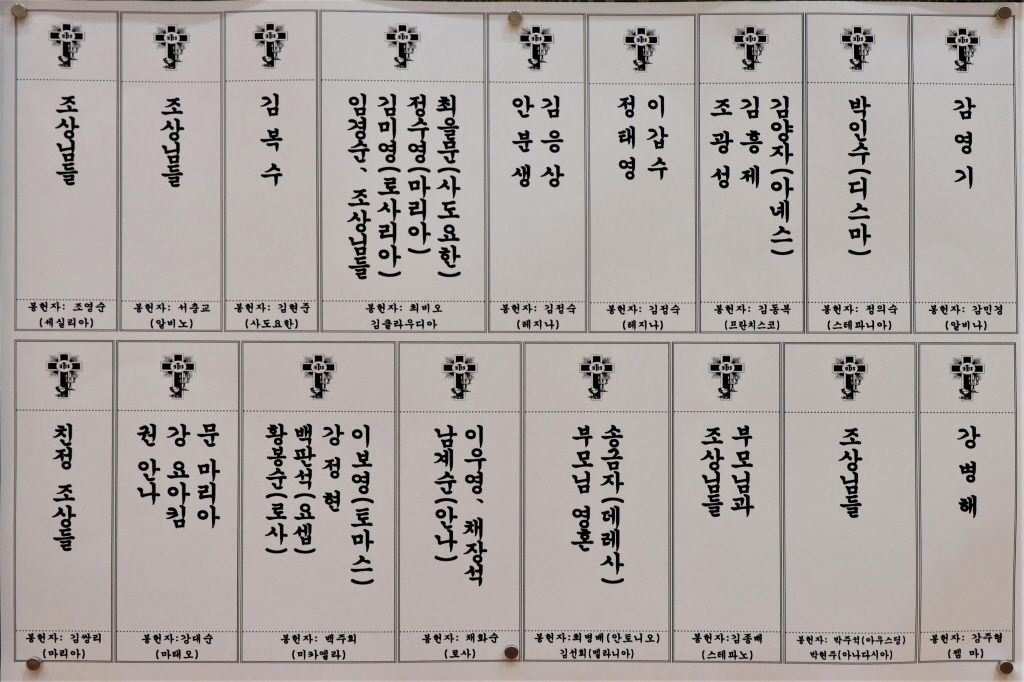 조상님들
봉헌자: 조영순
(세실리아)
조상님들
봉헌자: 서충교
(알비노)
김복수
봉헌자: 김현준
(사도요한)
최을문(사도요한)
정수영(마리아)
김미영(로사리아)
임경순, 조상님들
봉헌자: 최비오
김클라우디아
김응상
안분생
봉헌자: 김정숙
(레지나)
이갑수
정태영
봉헌자: 김정숙
(레지나)
김양자(아녜스)
김흥제
조광성
봉헌자: 김동복
(프란치스코)
박인수(디스마)
봉헌자: 정의숙
(스테파니아)
감영기
봉헌자: 감민경
(알비나)
친정 조상들
봉헌자: 김쌍리
(마리아)
문 마리아
강 요아킴
권 안나
봉헌자:강대순
(마태오)
이보영(토마스)
강정현
백판석(요셉)
황봉순(로사)
봉헌자: 백주희
(미카엘라)
이우영, 채장석
남계순(안나)
봉헌자: 채화순
(로사)
송금자(데레사)
부모님 영혼
봉헌자:최병배(안토니오)
김선희(멜라니아)
부모님과
조상님들
봉헌자:김종배
(스테파노)
조상님들
봉헌자: 박주석(아우스딩)
박현주(아나다시아)
강병해
봉헌자: 강주형
(젬마)